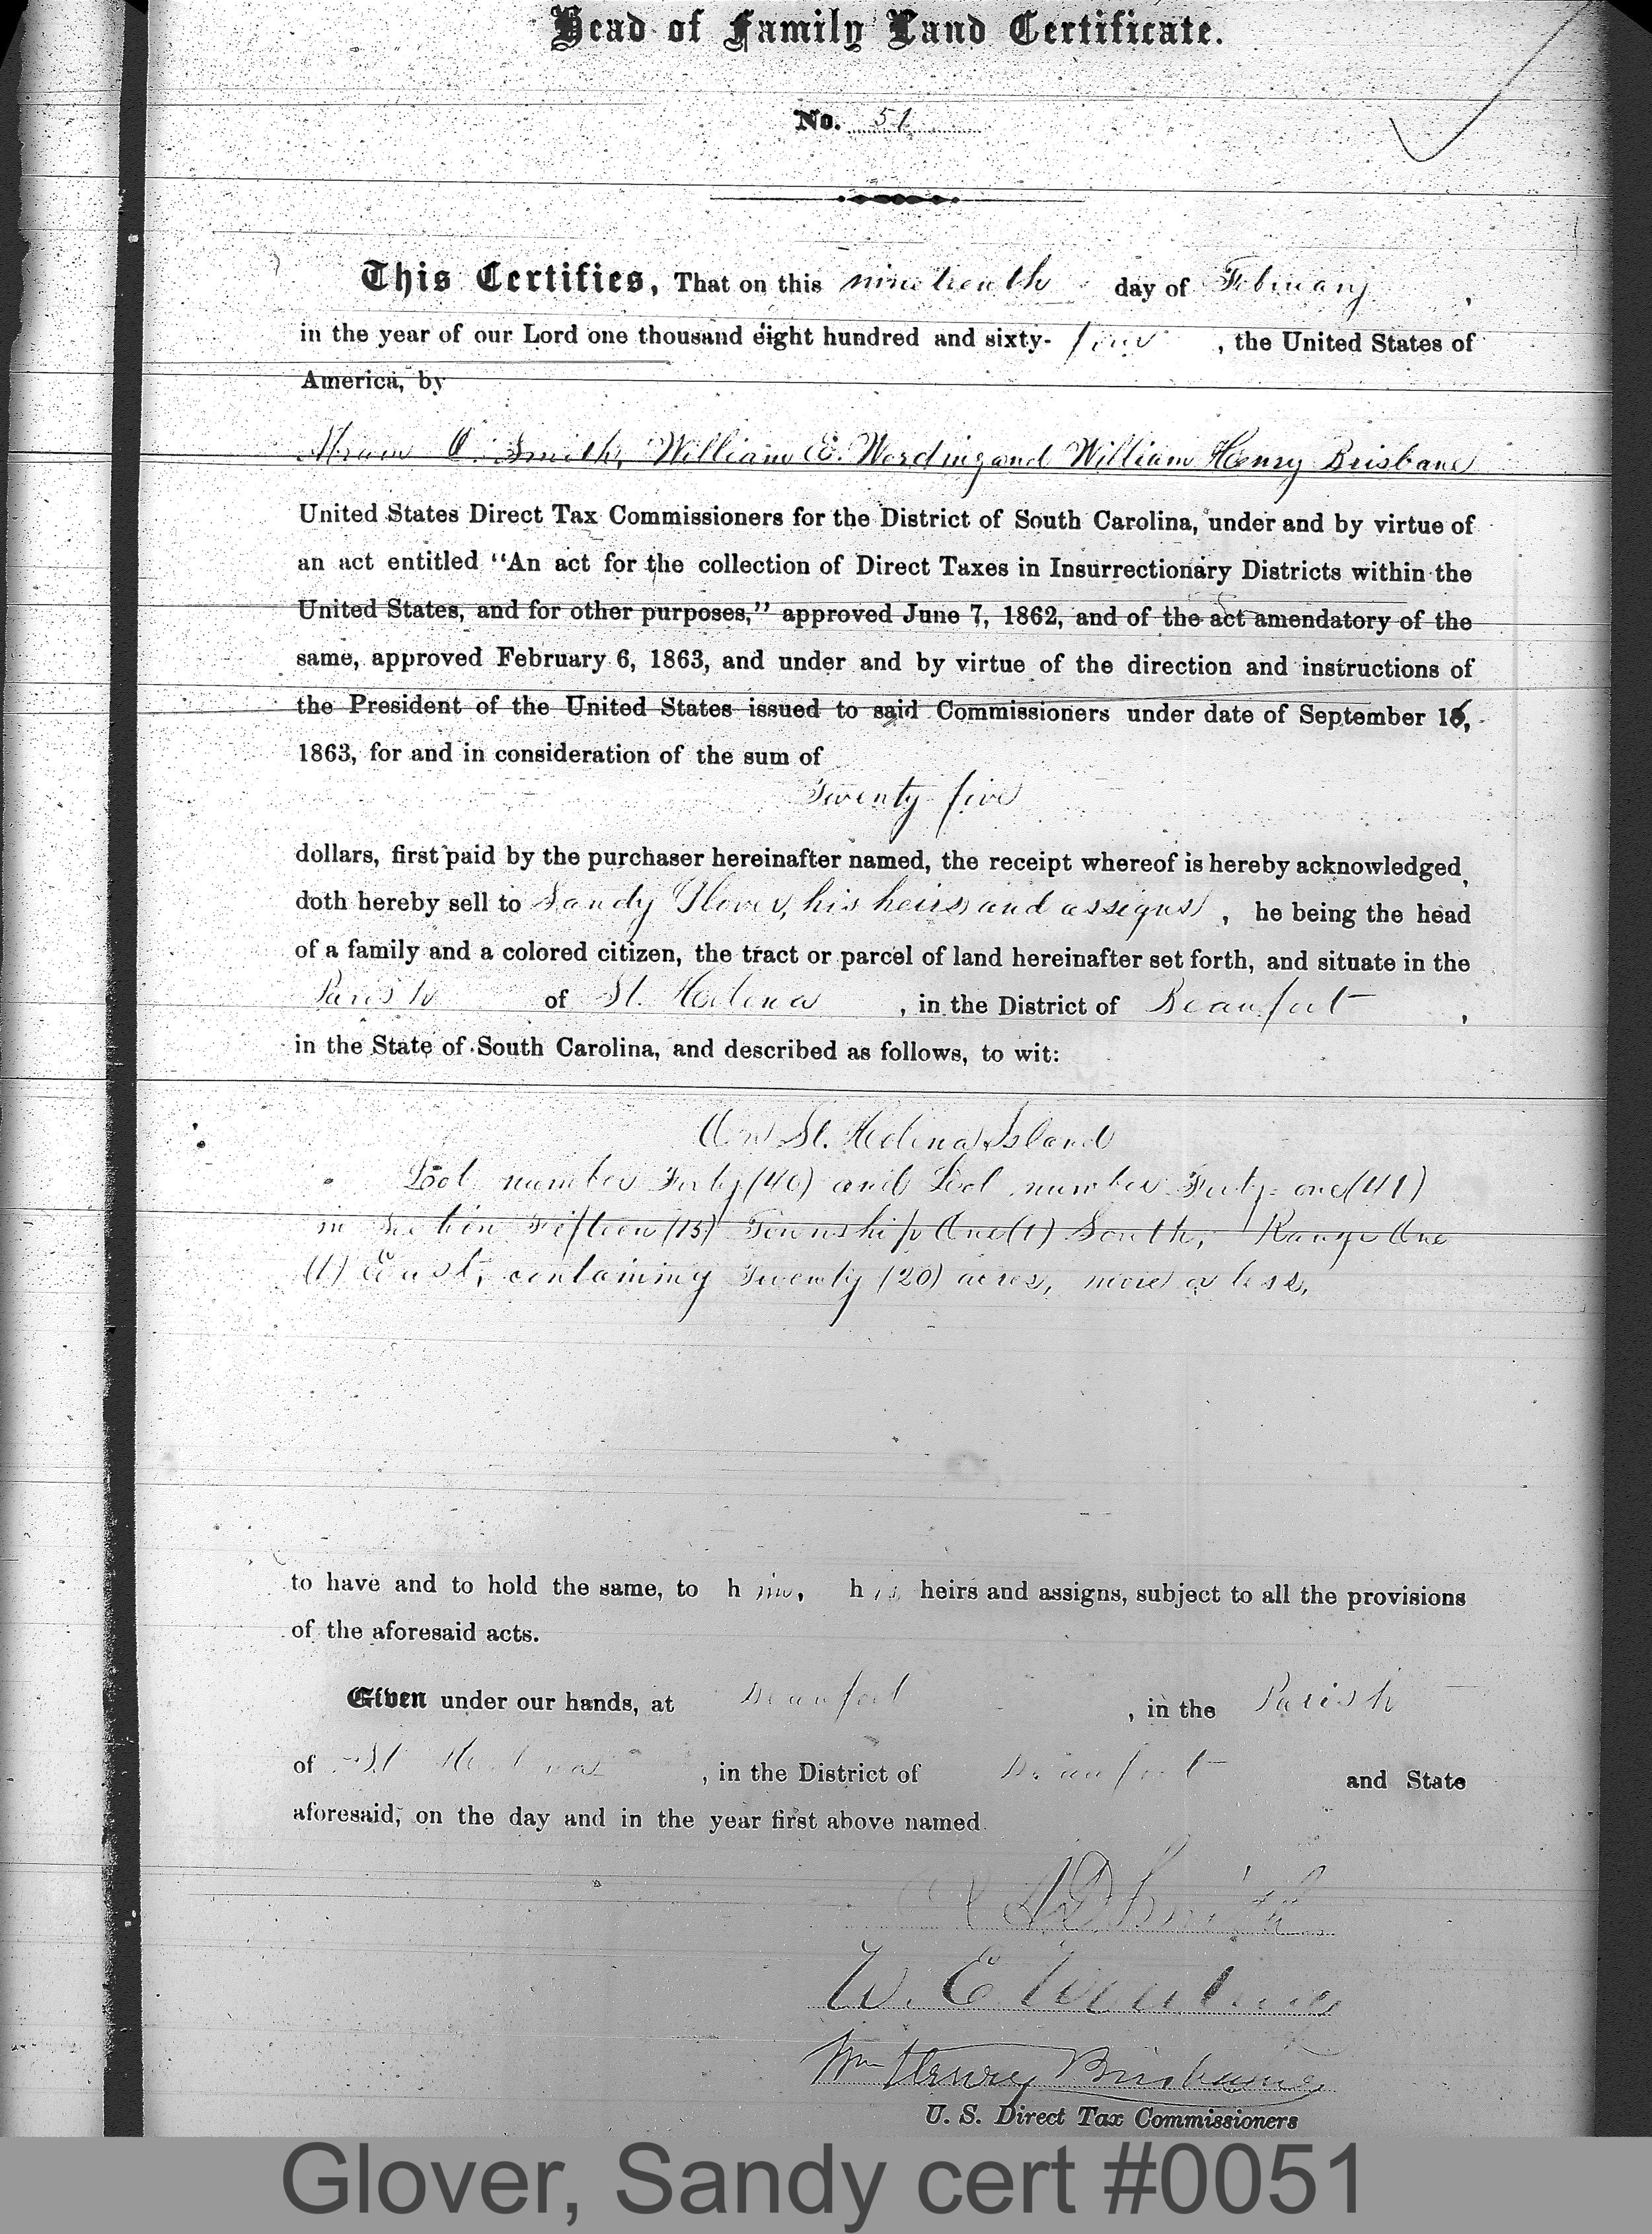 Head of Family Land Certificate.
No. 51
This Certifies, That on this nineteenth day of February,
in the year of our Lord one thousand eight hundred and sixty-four, the United States of
America, by
Abram D. Smith, William E. Wording and William Henry Brisbane
United States Direct Tax Commissioners for the District of South Carolina, under and by virtue of
an act entitled "An act for the collection of Direct Taxes in Insurrectionary Districts within the
United States, and for other purposes," approved June 7, 1862, and of the act amendatory of the
same, approved February 6, 1863, and under and by virtue of the direction and instructions of
the President of the United States issued to said Commissioners under date of September 16,
1863, for and in consideration of the sum of
Twenty five
dollars, first paid by the purchaser hereinafter named, the receipt whereof is hereby acknowledged,
doth hereby sell to Sandy Glover, his heirs and assigns, he being the head
of a family and a colored citizen, the tract or parcel of land hereinafter set forth, and situate in the
Parish of St. Helena, in the District of Beaufort,
in the State of South Carolina, and described as follows, to wit:
On St. Helena Island
Lot number Forty (40) and Lot number Forty-one (41)
in Section Fifteen (15) Township One (1) South, Range One
(1) East, containing Twenty (20) acres, more or less,
to have and to hold the same, to him, his heirs and assigns, subject to all the provisions
of the aforesaid acts.
Given under our hands, at Beaufort, in the Parish
of St Helena, in the District of Beaufort and State
aforesaid, on the day and in the year first above named.
A D Smith
W. E. Wording
Wm Henry Brisbane
U. S. Direct Tax Commissioners
Glover, Sandy cert #0051